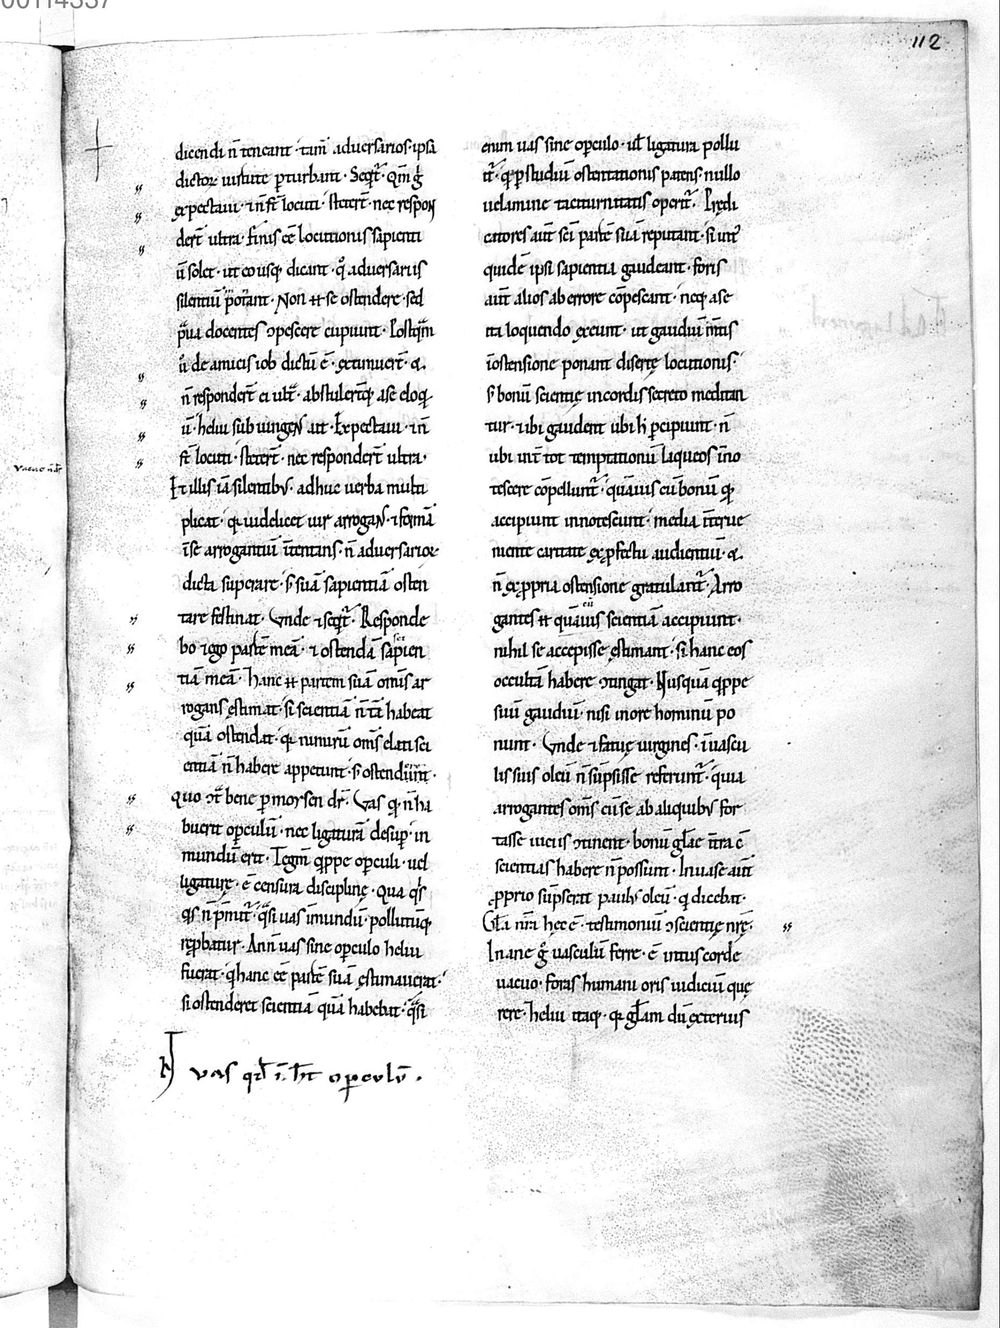 00114337
112
dicendi n̄ teneant · tam̄ adversarios · ipsa
dictoꝝ virtute ꝑturbant · Seqt̄ · Qm̄ g̊
expectavi · ⁊ n̄ st̄ locuti · steter̄t · nec respon
der̄t ultra · Finis ēē locutionis sapienti
ū solet · ut eo usq; dicant · q̊ adversariis
silentiū
Non ⁊ se ostendere · sed
docentes ↄpescere cupiunt · Postqͣm
ū de amicis iob dictū ē · extimuer̄t · &
n̄ responder̄t ei ult̄ · abstulerūtq; a se eloq
ū · heliu subiungens ait · Expectavi · ⁊ n̄
st̄ locuti · steter̄t · nec responder̄t ultra ·
Et illis iā silentibꝰ · adhuc verba multi
plicat · q; videlicet vir arrogans · ⁊ formā
ī se arrogantiū ītentans · n̄ adversarioꝝ
dicta superare · s; suā sapientiā osten
tare festinat · Unde ⁊ seqt̄ · Responde
bo ⁊ ego partē meā · ⁊ ostendā sapien
tiā meā · Hanc ⁊ partem suā om̄is ar
rogans ęstimat · si scientiā n̄ tā habeat
quā ostendat · q; nimirū om̄s elati sci
entiā n̄ habere appetunt · s; ostendunt ·
Quo ↄt̄ bene ꝑ moysen dr̄ · Vas q; n̄ ha
buerit opculū · nec ligaturā desup̄ · in
mundū erit · Tegm̄ q̄ppe opculi · vel
ligaturę · ē censura disciplinę · Qua q̄s
q̄s n̄ p̄mit̄ · q̄si vas īmundū · pollutūq;
reꝓbatur · An n̄ vas sine opculo heliu
fuerat · q̄ hanc ēē partē suā ęstimaverat ·
si ostenderet scientiā quā habebat · q̄si
uas qd̄ n̄ ht̄ opculū .
enim vas sine opculo · ul̄ ligatura pollu
it̄ · q; ꝑ studiū ostentationis patens · nullo
velamine taciturnitatis operit̄ · Prędi
catores aut̄ sci partē suā reputant · si int̄
quidē ipsi sapientia gaudeant · foris
aut̄ alios ab errore cōpescant · neq; a se
in loquendo exeunt · ut gaudiū m̄tis
ī ostensione ponant disertę locutionis ·
s; bonū scientię in cordis secreto meditan
tur · ⁊ ibi gaudent ubi h̄ percipiunt · n̄
ubi int̄ tot temptationū laqueos īno
tescere cōpellunt̄ · quāvis cū bonū q̄
accipiunt innotescunt · media īterve
niente caritate ex ꝓfectu audientiū · &
n̄ ex ꝓpria ostensione gratulant̄ · Arro
gantes ⁊ quāvis scientiā accipiunt ·
nihil se accepisse ęstimant · si hanc eos
occultā habere ↄtingat · Nusquā q̄ppe
suū gaudiū · nisi in ore hominū po
nunt · Unde ⁊ fatuę virgines · ī vascu
lis suis oleū n̄ sūpsisse referunt̄ · quia
arrogantes om̄s cū se ab aliquibꝰ for
tasse viciis ↄtinent · bonū glāe ītra ē
scientias habere n̄ possunt · In vase aut̄
ꝓprio sūpserat paulꝰ oleū · q̄ dicebat ·
Gl̄a nr̄a hęc ē · testimoniū ↄscientię nrę ·
Inane g̊ vasculū ferre · ē intus corde
vacuo · foras humani oris iudiciū quę
rere · Heliu itaq; · q; gl̄am dū exterius